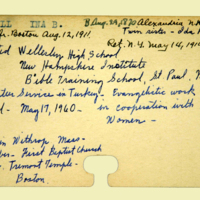 ILL INA B. B. Aug. 29, 1870 Alexandria, N.H.
fr. Boston Aug. 12, 1911. Twin sister - Ida
Ret. N.Y. May 14, 191
Wellesley High School
New Hampshire Institute
Bible Training School, St. Paul,
Service in Turkey - Evangelistic work
- May 17, 1940 - in cooperation with
Women -
Winthrop, Mass -
First Baptist Church
Tremont Temple -
Boston.